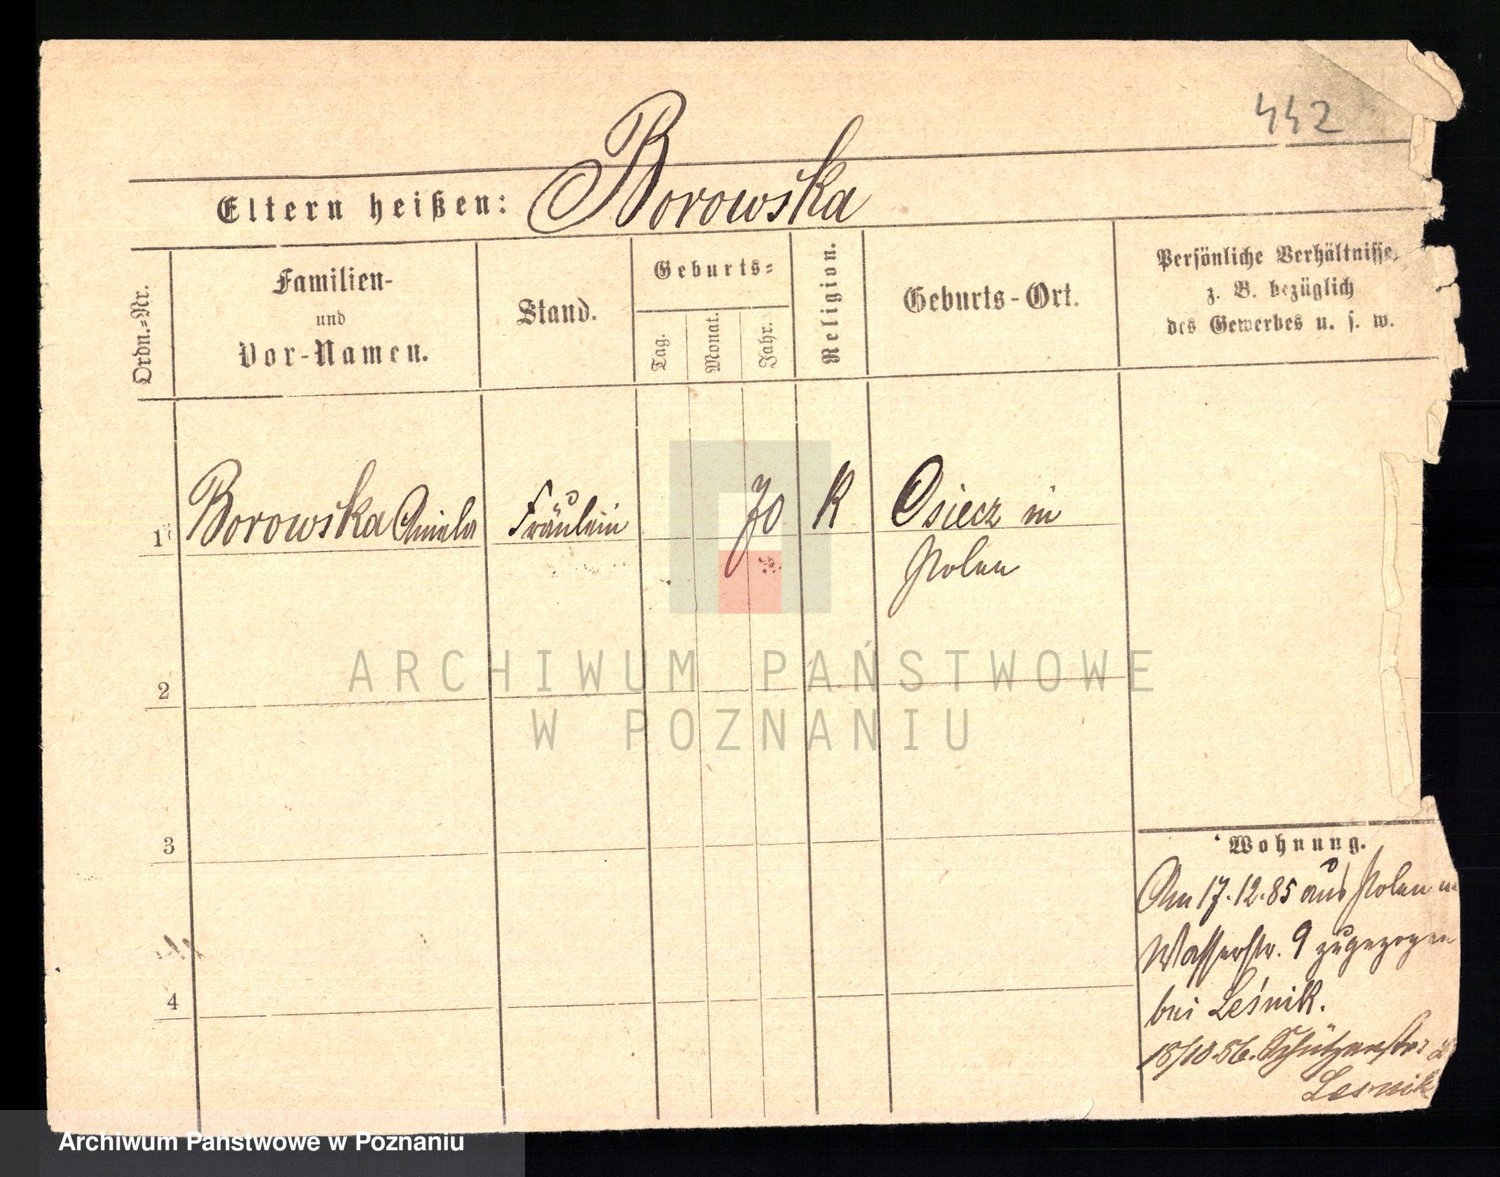 442
Eltern heißen: Borowska
Ordn.-Nr.
Familien-
und
Vor-Namen.
Stand.
Geburts-
Tag.
Monat.
Jahr.
Religion.
Geburts-Ort.
Persönliche Verhältnisse,
z. B. bezüglich
des Gewerbes u. s. w.
1 Borowska Aniela Fräulein 70 K Osiecz in
Polen
2
3
4
ARCHIWUM PAŃSTWOWE
W POZNANIU
Wohnung.
Am 17.12.85 aus Polen
Wasserstr. 9 zugezogen
bei Leśnik.
18/10.86. Schützenstr.
Lesnik
Archiwum Państwowe w Poznaniu